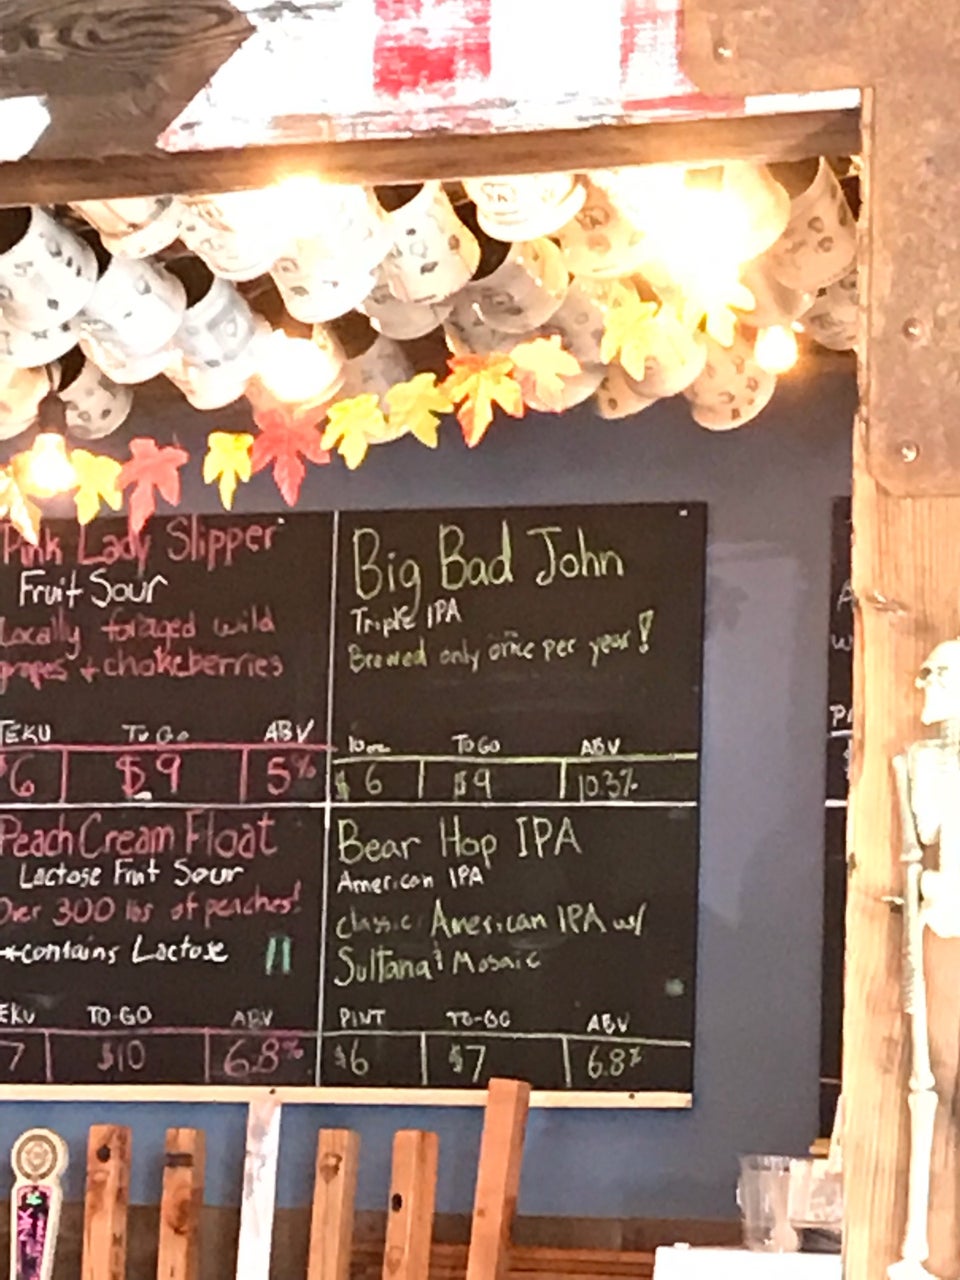 Pink Lady Slipper
Fruit Sour
Locally foraged wild
grapes + chokeberries
TEKU To Go ABV
$6 $9 5%
Big Bad John
Triple IPA
Brewed only once per year!
10oz ToGo ABV
$6 $9 10.3%
Peach Cream Float
Lactose Fruit Sour
Over 300 lbs of peaches!
*contains Lactose
EKU TO-GO ABV
7 $10 6.8%
Bear Hop IPA
American IPA
classic American IPA w/
Sultana & Mosaic
PINT TO-GO ABV
$6 $7 6.8%